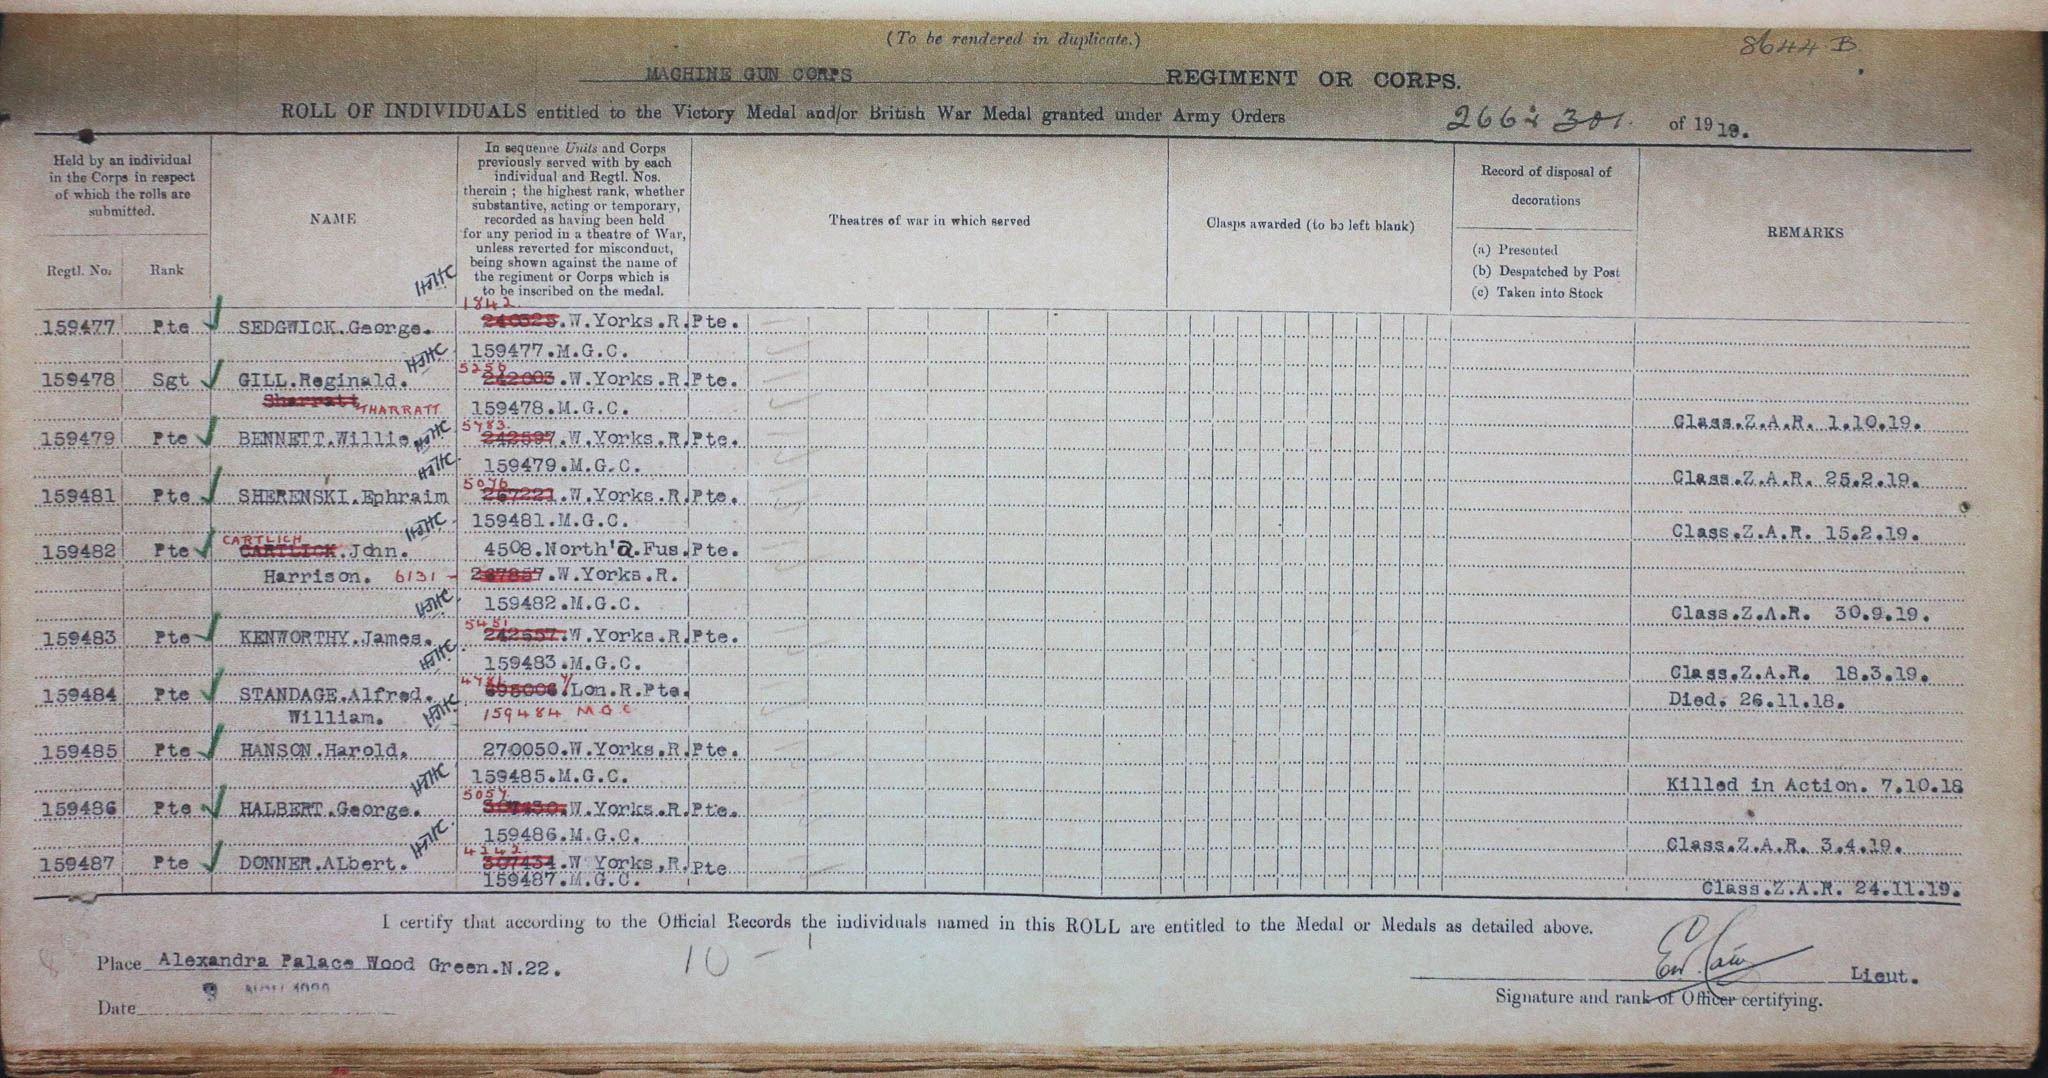 (To be rendered in duplicate.)
8644 B.
MACHINE GUN CORPS REGIMENT OR CORPS.
ROLL OF INDIVIDUALS entitled to the Victory Medal and/or British War Medal granted under Army Orders 266 & 301. of 1919.
Held by an individual
in the Corps in respect
of which the rolls are
submitted.
Regtl. No. Rank
NAME
In sequence Units and Corps
previously served with by each
individual and Regtl. Nos.
therein ; the highest rank, whether
substantive, acting or temporary,
recorded as having been held
for any period in a theatre of War,
unless reverted for misconduct,
being shown against the name of
the regiment or Corps which is
to be inscribed on the medal.
Theatres of war in which served
Clasps awarded (to be left blank)
Record of disposal of
decorations
(a) Presented
(b) Despatched by Post
(c) Taken into Stock
REMARKS
1842
159477 Pte SEDGWICK.George. .W.Yorks.R. Pte.
159477.M.G.C.
5256
159478 Sgt GILL.Reginald. 242003.W.Yorks.R. Pte.
Sharratt THARRATT 159478.M.G.C. Class.Z.A.R. 1.10.19.
5783.
159479 Pte BENNETT.Willie. 242597.W.Yorks.R. Pte.
159479.M.G.C. Class.Z.A.R. 25.2.19.
5076
159481 Pte SHERENSKI.Ephraim 267221.W.Yorks.R. Pte.
159481.M.G.C. Class.Z.A.R. 15.2.19.
CARTLICH
159482 Pte CARTLICK.John. 4508.North'd.Fus. Pte.
Harrison. 6131 - 267857.W.Yorks.R.
159482.M.G.C. Class.Z.A.R. 30.9.19.
5451
159483 Pte KENWORTHY.James. 242557.W.Yorks.R. Pte.
159483.M.G.C. Class.Z.A.R. 18.3.19.
159484 Pte STANDAGE.Alfred. .Lon.R.Pte. Died. 26.11.18.
William. 159484 M.G.C
159485 Pte HANSON.Harold. 270050.W.Yorks.R. Pte.
159485.M.G.C. Killed in Action. 7.10.18
5057
159486 Pte HALBERT.George. .W.Yorks.R. Pte.
159486.M.G.C. Class.Z.A.R. 3.4.19.
4242
159487 Pte DONNER.ALbert. 307434.W Yorks.R. Pte
159487.M.G.C. Class.Z.A.R. 24.11.19.
I certify that according to the Official Records the individuals named in this ROLL are entitled to the Medal or Medals as detailed above.
Place Alexandra Palace Wood Green.N.22. 10 -
Lieut.
Date
Signature and rank of Officer certifying.